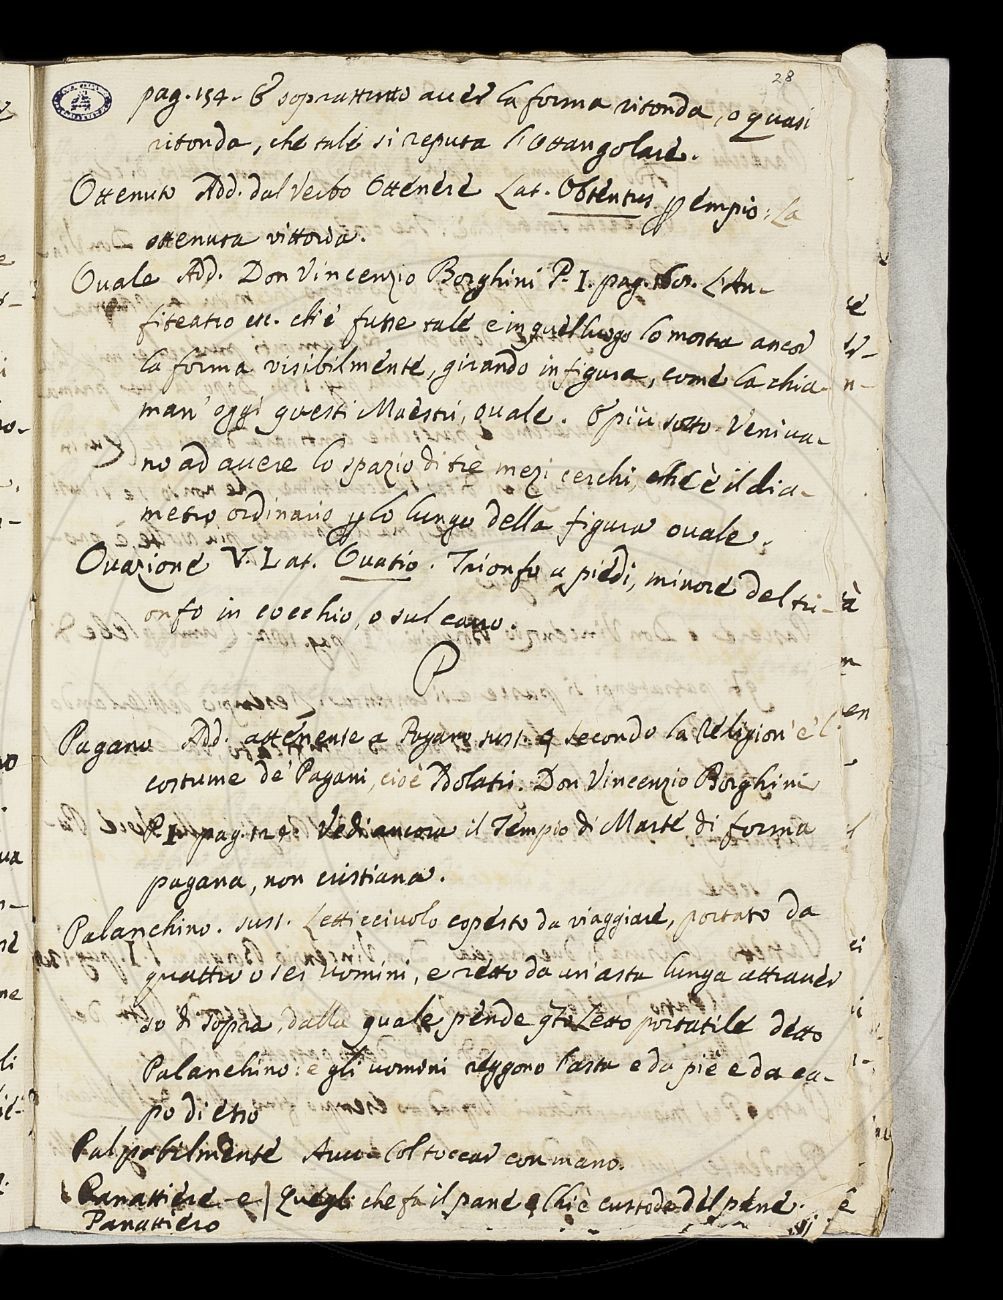 28
pag. 154. E soprattutto aver la forma ritonda, o quasi
ritonda, che tale si reputa l'Ottangolare.
Ottenuto Add. dal Verbo Ottenere Lat. Obtentus p esempio: La
ottenuta vittoria.
Ovale Add. Don Vincenzio Borghini P. I. pag. 160. L'An-
fiteatro etc. ch'e' fusse tale e in quel luogo lo mostra ancor
la forma visibilmente, girando in figura, come la chia-
man' oggi questi Maestri, ovale. E più sotto. Veniva-
no ad avere lo spazio di tre mezi cerchi, che è il dia-
metro ordinario p lo lungo della figura ovale.
Ovazione V. Lat. Ovatio. Trionfo a piedi, minore del tri-
onfo in cocchio, o sul carro.
P
Pagano Add. attenente a Pagano sust. e secondo la Religion' e 'l
costume de' Pagani, cioè Idolatri. Don Vincenzio Borghini
P. I. pag. 124. Vedi ancora il Tempio di Marte di forma
pagana, non cristiana.
Palanchino. sust. Letticciuolo coperto da viaggiare, portato da
quattro o sei uomini, e retto da un'asta lunga attraver
so di sopra, dalla quale pende qto Letto portatile detto
Palanchino: e gli uomini reggono l'asta e da piè e da ca-
po dietro
Palpabilmente Avv. Col toccar con mano.
Panattiere e } Quegli che fa il pane e Chi è custode del pane.
Panattiero